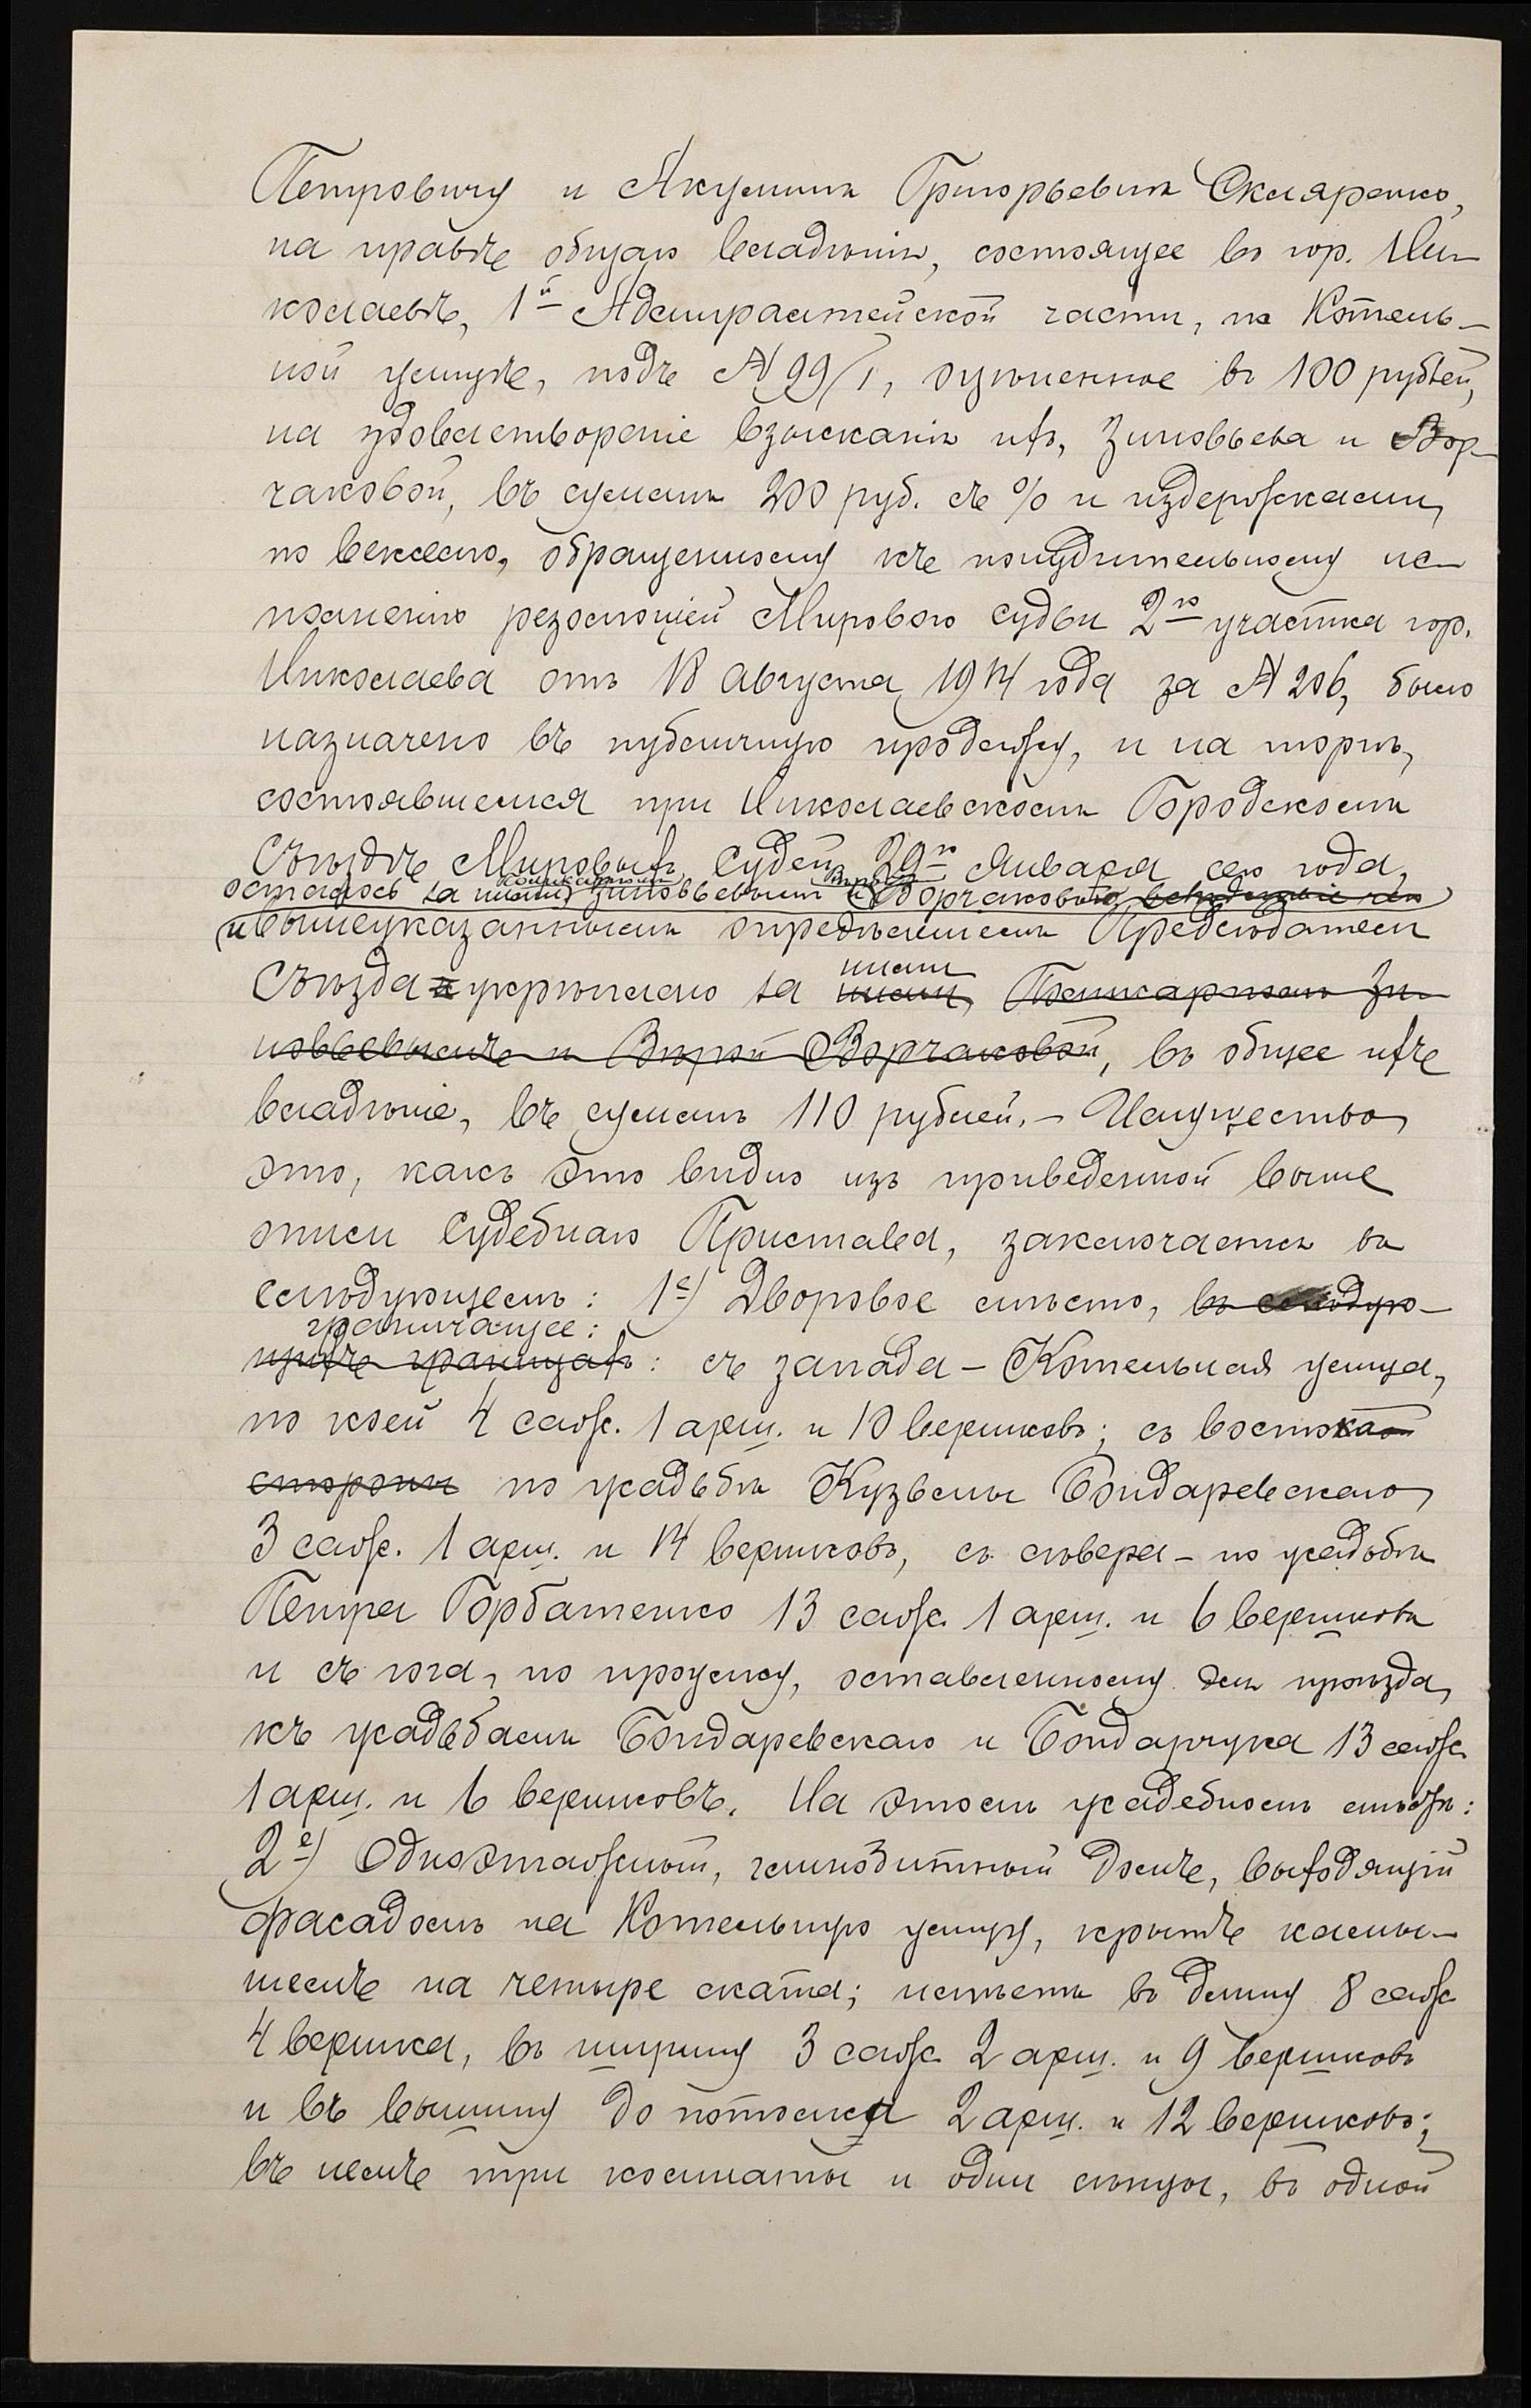 Петровичу и Акулинѣ Григорьевнѣ Скляренко,
на правѣ общаго владѣнія, состоящее въ гор. Ни-
колаевѣ, 1й Адмиралтейской части, на Котель-
ной улицѣ, подъ № 99/1, оцѣненное въ 100 рублей,
на удовлетвореніе взысканія ихъ, Зиновьева и Вор-
чаковой, въ суммѣ 200 руб. съ % и издержками,
по векселю, обращенному къ понудительному ис-
полненію резолюціей Мирового Судьи 2го участка гор.
Николаева отъ 18 августа 1914 года за № 206, было
назначено въ публичную продажу, и на торгѣ,
состоявшемся при Николаевскомъ Городскомъ
Съѣздѣ Мировыхъ Судей 29го Января сего года,
осталось за ними, Поликарпомъ Зиновьевымъ и Вѣрой Ворчаковой,
и вышеуказаннымъ опредѣленіемъ Предсѣдателя
Съѣзда укрѣплено за ними ними, Поликарпомъ Зи-
новьевымъ и Вѣрой Ворчаковой, въ общее ихъ
владѣніе, въ суммѣ 110 рублей. – Имущество
это, какъ это видно изъ приведенной выше
описи Судебнаго Пристава, заключается въ
слѣдующемъ: 1е) Дворовое мѣсто, въ слѣдую-
граничащее:
щихъ границахъ: съ запада – Котельная улица,
по коей 4 саж. 1 арш. и 10 вершковъ; съ востока
стороны по усадьбѣ Кузьмы Бондаревскаго
3 саж. 1 арш. и 14 вершковъ, съ сѣвера – по усадьбѣ
Петра Горбатенко 13 саж. 1 арш. и 6 вершковъ
и съ юга, по проулку, оставленному для проѣзда
къ усадьбамъ Бондаревскаго и Бондарчука 13 саж.
1 арш. и 6 вершковъ. На этомъ усадебномъ мѣстѣ:
2е) Одноэтажный, глинобитный домъ, выходящій
фасадомъ на Котельную улицу, крытъ камы-
шемъ на четыре ската; имѣетъ въ длину 8 саж.
4 вершка, въ ширину 3 саж. 2 арш. и 9 вершковъ
и въ вышину до потолка 2 арш. и 12 вершковъ;
въ немъ три комнаты и одни сѣнцы, въ одной